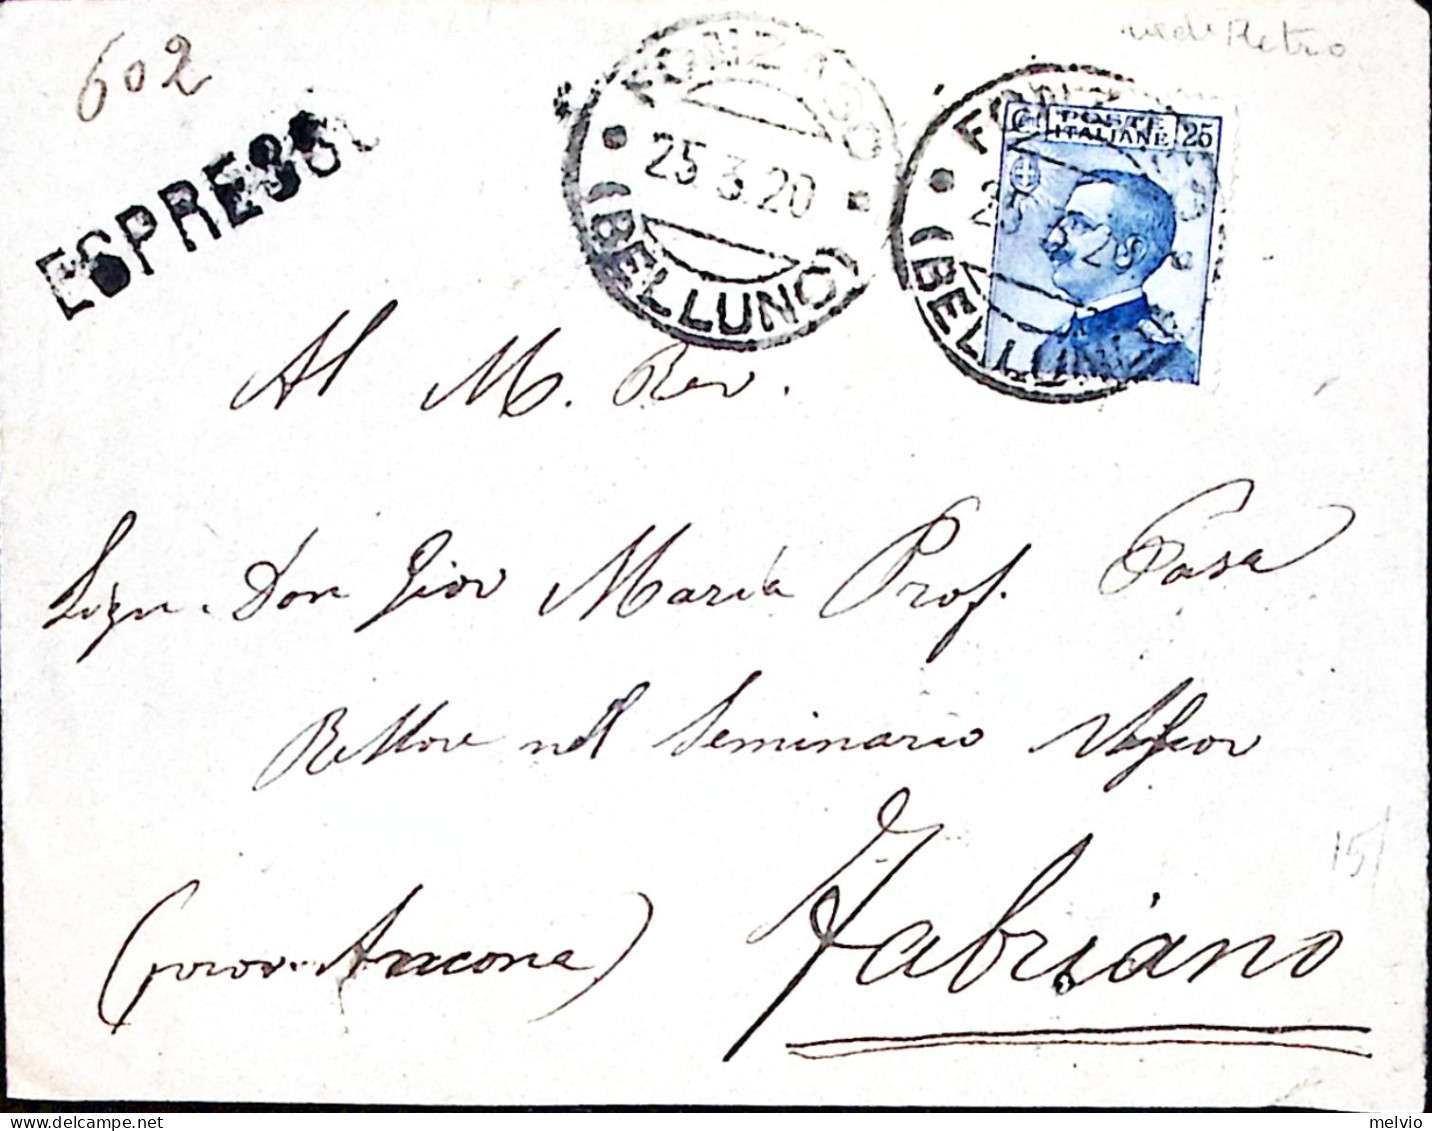 602
vedi Retro
ESPRESSO
FONZASO
25.3.20
(BELLUNO)
POSTE
ITALIANE 25
Al M. Rev.
Sign. Don Giov Maria Prof. Casa
Rettore nel Seminario
(prov. Ancona) Fabriano
15/
melvio